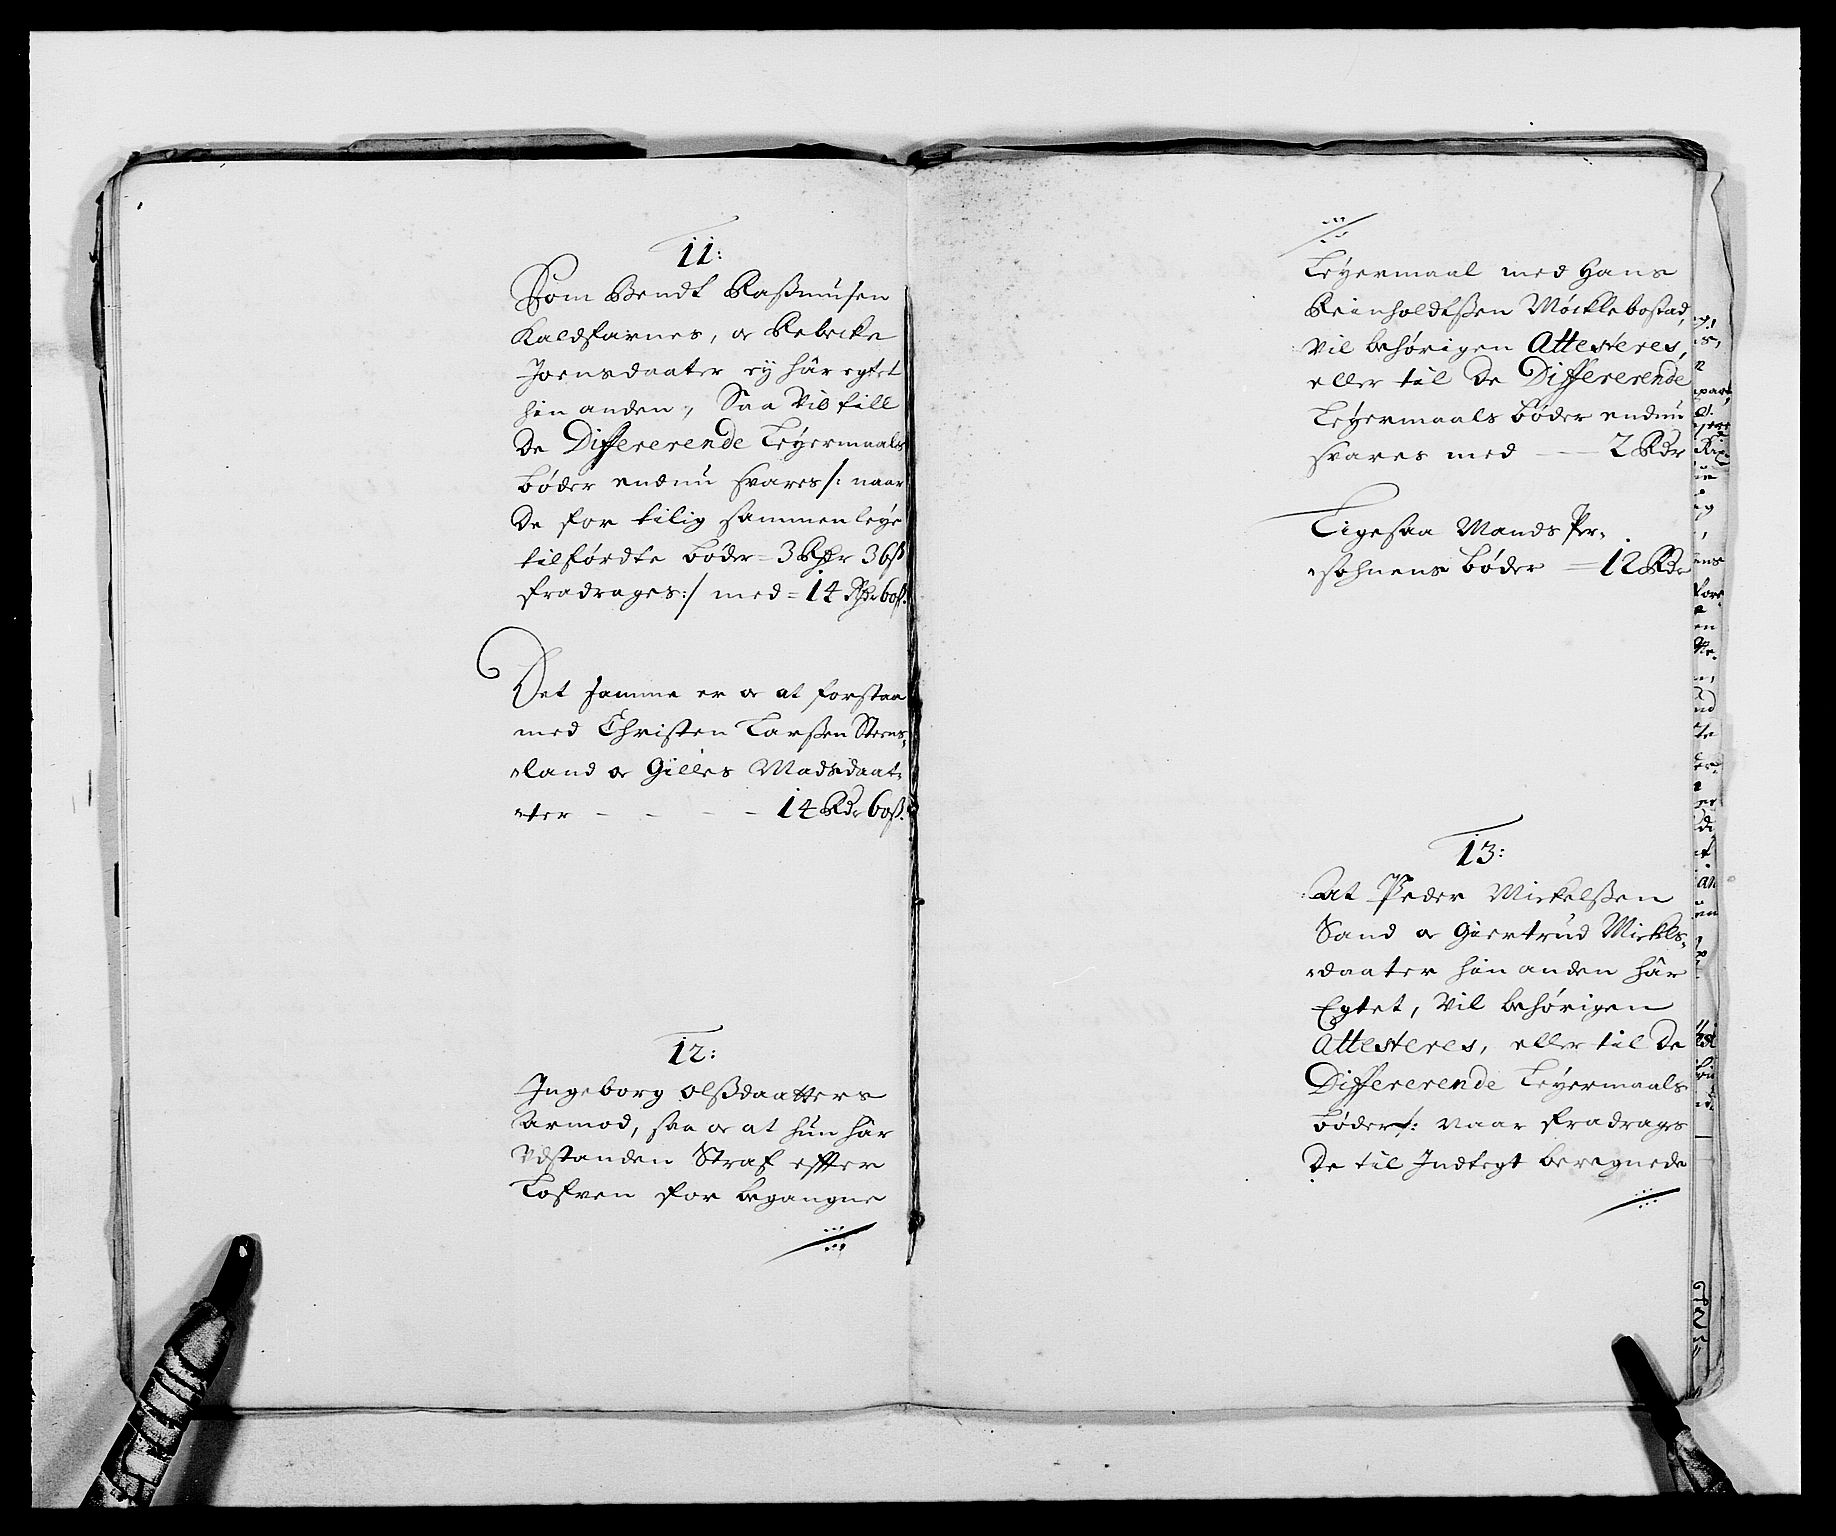 11:
Som Bendt Rasmusen
Kaldfarnes, oc Rebecke
Joensdaater ej hâr egtet
hin anden, Saa Vil till
De Differerende Leÿermaals
bøder endnu svares /: naar
De for tilig sammenleÿe
tilførdte bøder = 3 Rdr 36 ß
fradrages :/ med = 14 Rdr 60 ß.
Det samme er oc at forstaa
med Christen Larßen Steens-
land oc Gilles Madsdaat-
ter - - - - 14 Rdr 60 ß.
12:
Ingeborg Olßdaatters
Armod, saa oc at hun hâr
Udstanden Straf effter
Lofven for begangne
Leÿermaal med Hans
Reinholdtßen Møcklebostad,
Vil behörigen Attesteres,
eller til De Differerende
Leÿermaals bøder endnu
svares med - - 2 Rdr
Ligesaa Mands Per-
sohnens bøder = 12 Rdr
13:
At Peder Mickelßen
Sand oc Giertrud Mickels-
daater hin anden hâr
Egtet, Vil behörigen
Attesteres, eller til De
Differerende Leÿermaals
bøder /: Naar fradrages
De til Indtegt beregnede